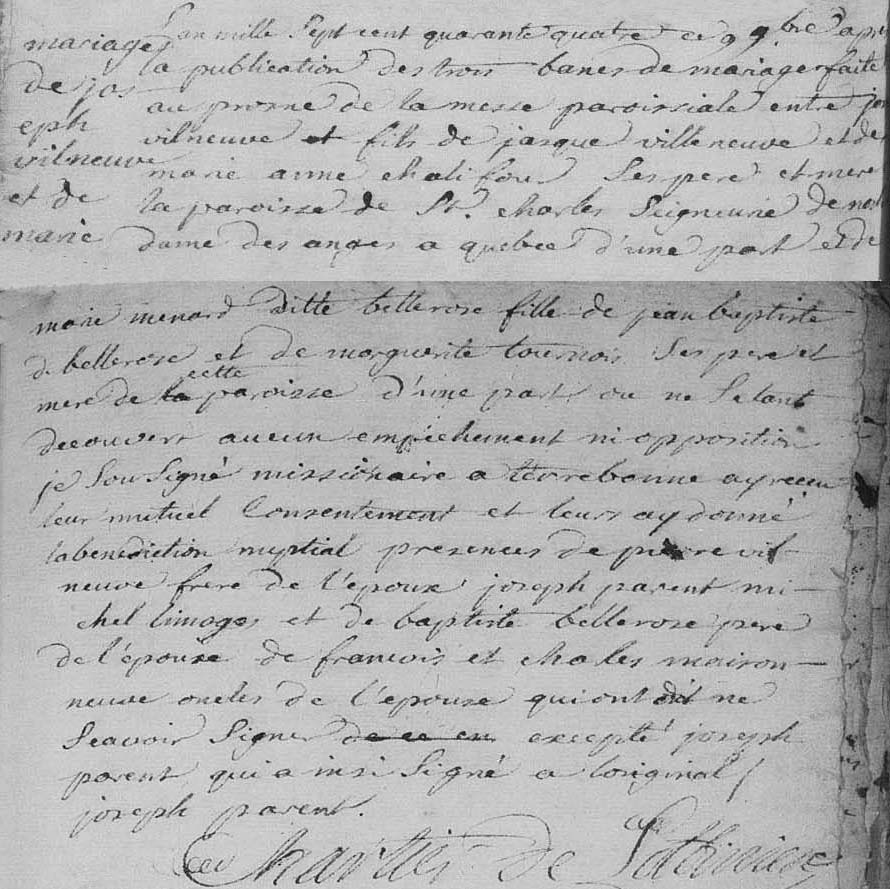 mariages
de jos
eph
vilneuve
et de
marie
L'an mille Sept cent quarante quatre ce 9 9.bre apres
la publication des trois bancs de mariage faite
au prosne de la messe paroissiale entre jo
vilneuve et fils de jasque villeneuve et de
marie anne chalifou Ses pere et mere
la paroisse de St. charles Seigneurie de not
dame des anges a quebec d'une part et de
marie menard ditte bellerose fille de jean baptiste
d. bellerose et de marguerite tournois Ses pere et
cette
mere de la paroisse d'une part ou ne Setant
decouvert aucun empêchement ni opposition
je Sousigné missionaire a terrebonne ay receu
leur mutuel Consentement et leurs ay donné
la benediction nuptial presences de pierre vil-
neuve frere de l'epoux joseph parent mi-
chel limoges et de baptiste bellerose pere
de l'épouse de francois et chales maison-
neuve oncles de l'epouse qui ont dit ne
Seavoir Signer de ce en excepté joseph
parent qui a insi Signé a loriginal /
joseph parent.
Chartier de Lotbiniere